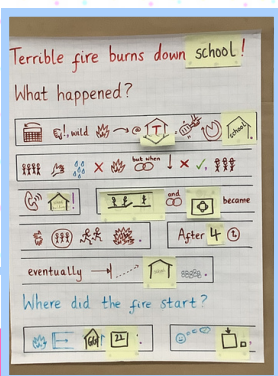 Terrible fire burns down school!
What happened?
!, wild @ T school
but when
! and became
After 4
eventually
Where did the fire start?